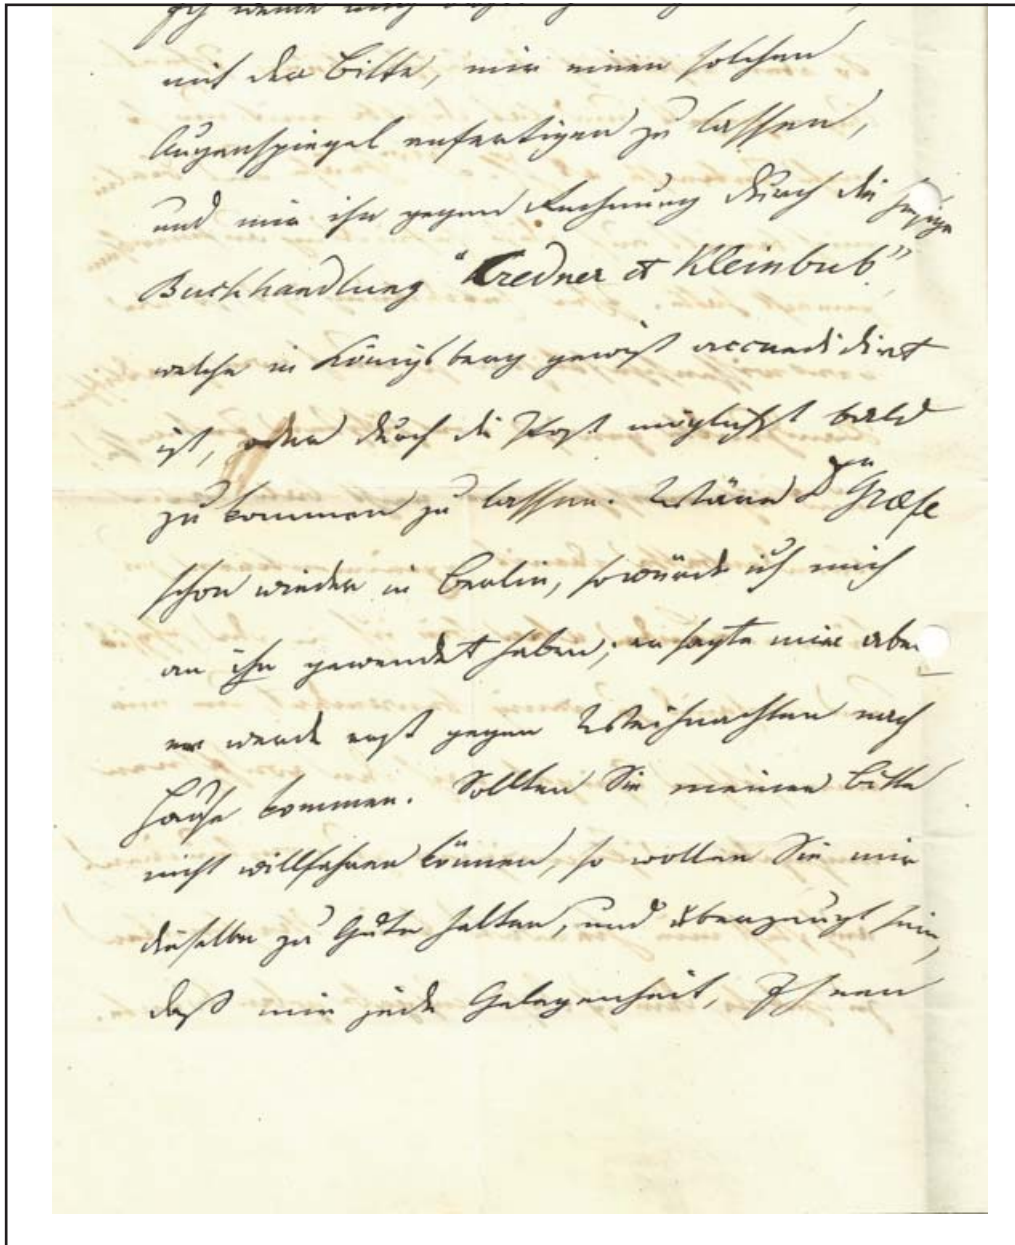 mit der Bitte, mir einen solchen
Augenspiegel anfertigen zu lassen,
und mir ihn gegen Rechnung durch die hiesige
Buchhandlung "Credner et Kleinbub",
welche in Königsberg gewiß accreditirt
ist, oder durch die Post möglichst bald
zu kommen zu lassen. Wäre Dr Græfe
schon wieder in Berlin, so würde ich mich
an ihn gewendet haben; er sagte mir aber
er werde erst gegen Weihnachten nach
Hause kommen. Sollten Sie meiner Bitte
nicht willfahren können, so wollen Sie mir
dieselbe zu Gute halten, und überzeugt sein,
daß mir jede Gelegenheit, Ihnen